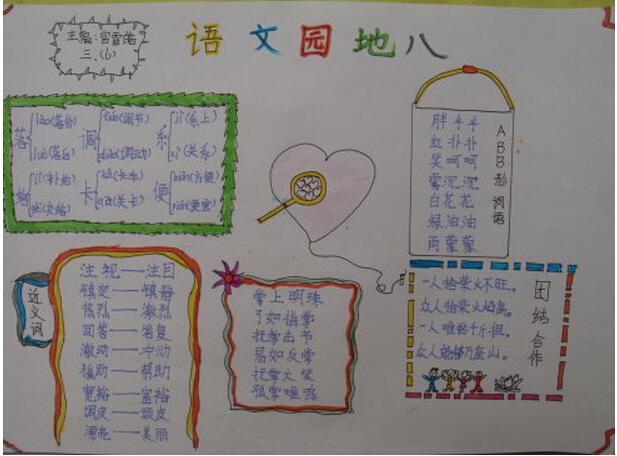 主编:宫雷皓
三、(6)
语文园地八
落
lào(落价)
luò(落后)
调
tiáo(调节)
diào(调动)
系
jì(系上)
xì(关系)
给
jǐ(补给)
卡
kǎ(卡车)
qiǎ(关卡)
便
biàn(方便)
pián(便宜)
ABB形词语
胖乎乎
红扑扑
笑呵呵
雾沉沉
白花花
绿油油
雨蒙蒙
近义词
注视——注目
镇定——镇静
热烈——激烈
回答——答复
激动——冲动
援助——帮助
宽裕——富裕
调皮——顽皮
漂亮——美丽
掌上明珠
了如指掌
抚掌击节
易如反掌
抚掌大笑
孤掌难鸣
团结合作
一人拾柴火不旺,
众人拾柴火焰高。
一人难挑千斤担,
众人能移万座山。